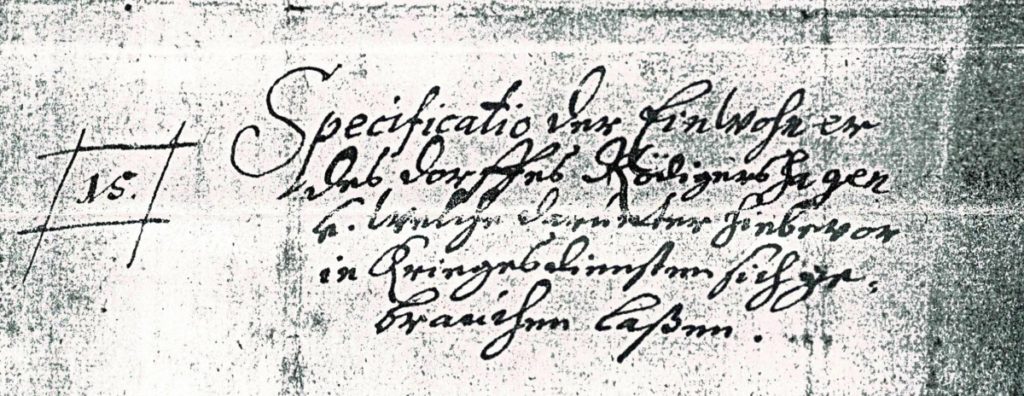 15.
Specificatio der Einwohner
des dorffes Rödigershagen
u. welche darunter hiebevor
in Kriegesdiensten sich ge-
brauchen laßen.